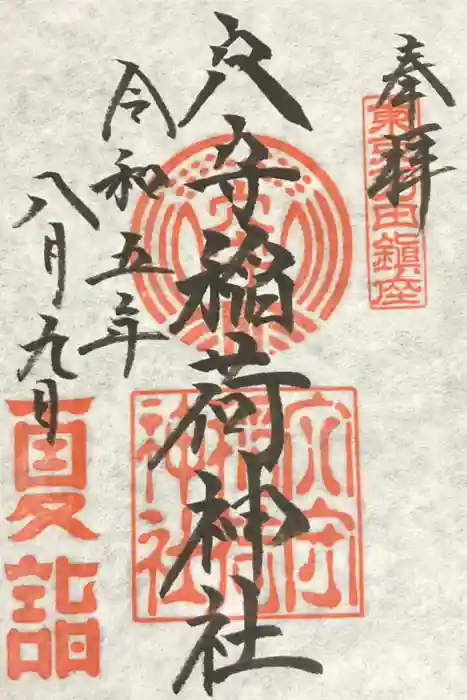 奉拝
東京羽田鎮座
穴守稲荷神社
穴守
稲荷
神社
令和五年
八月九日
夏詣